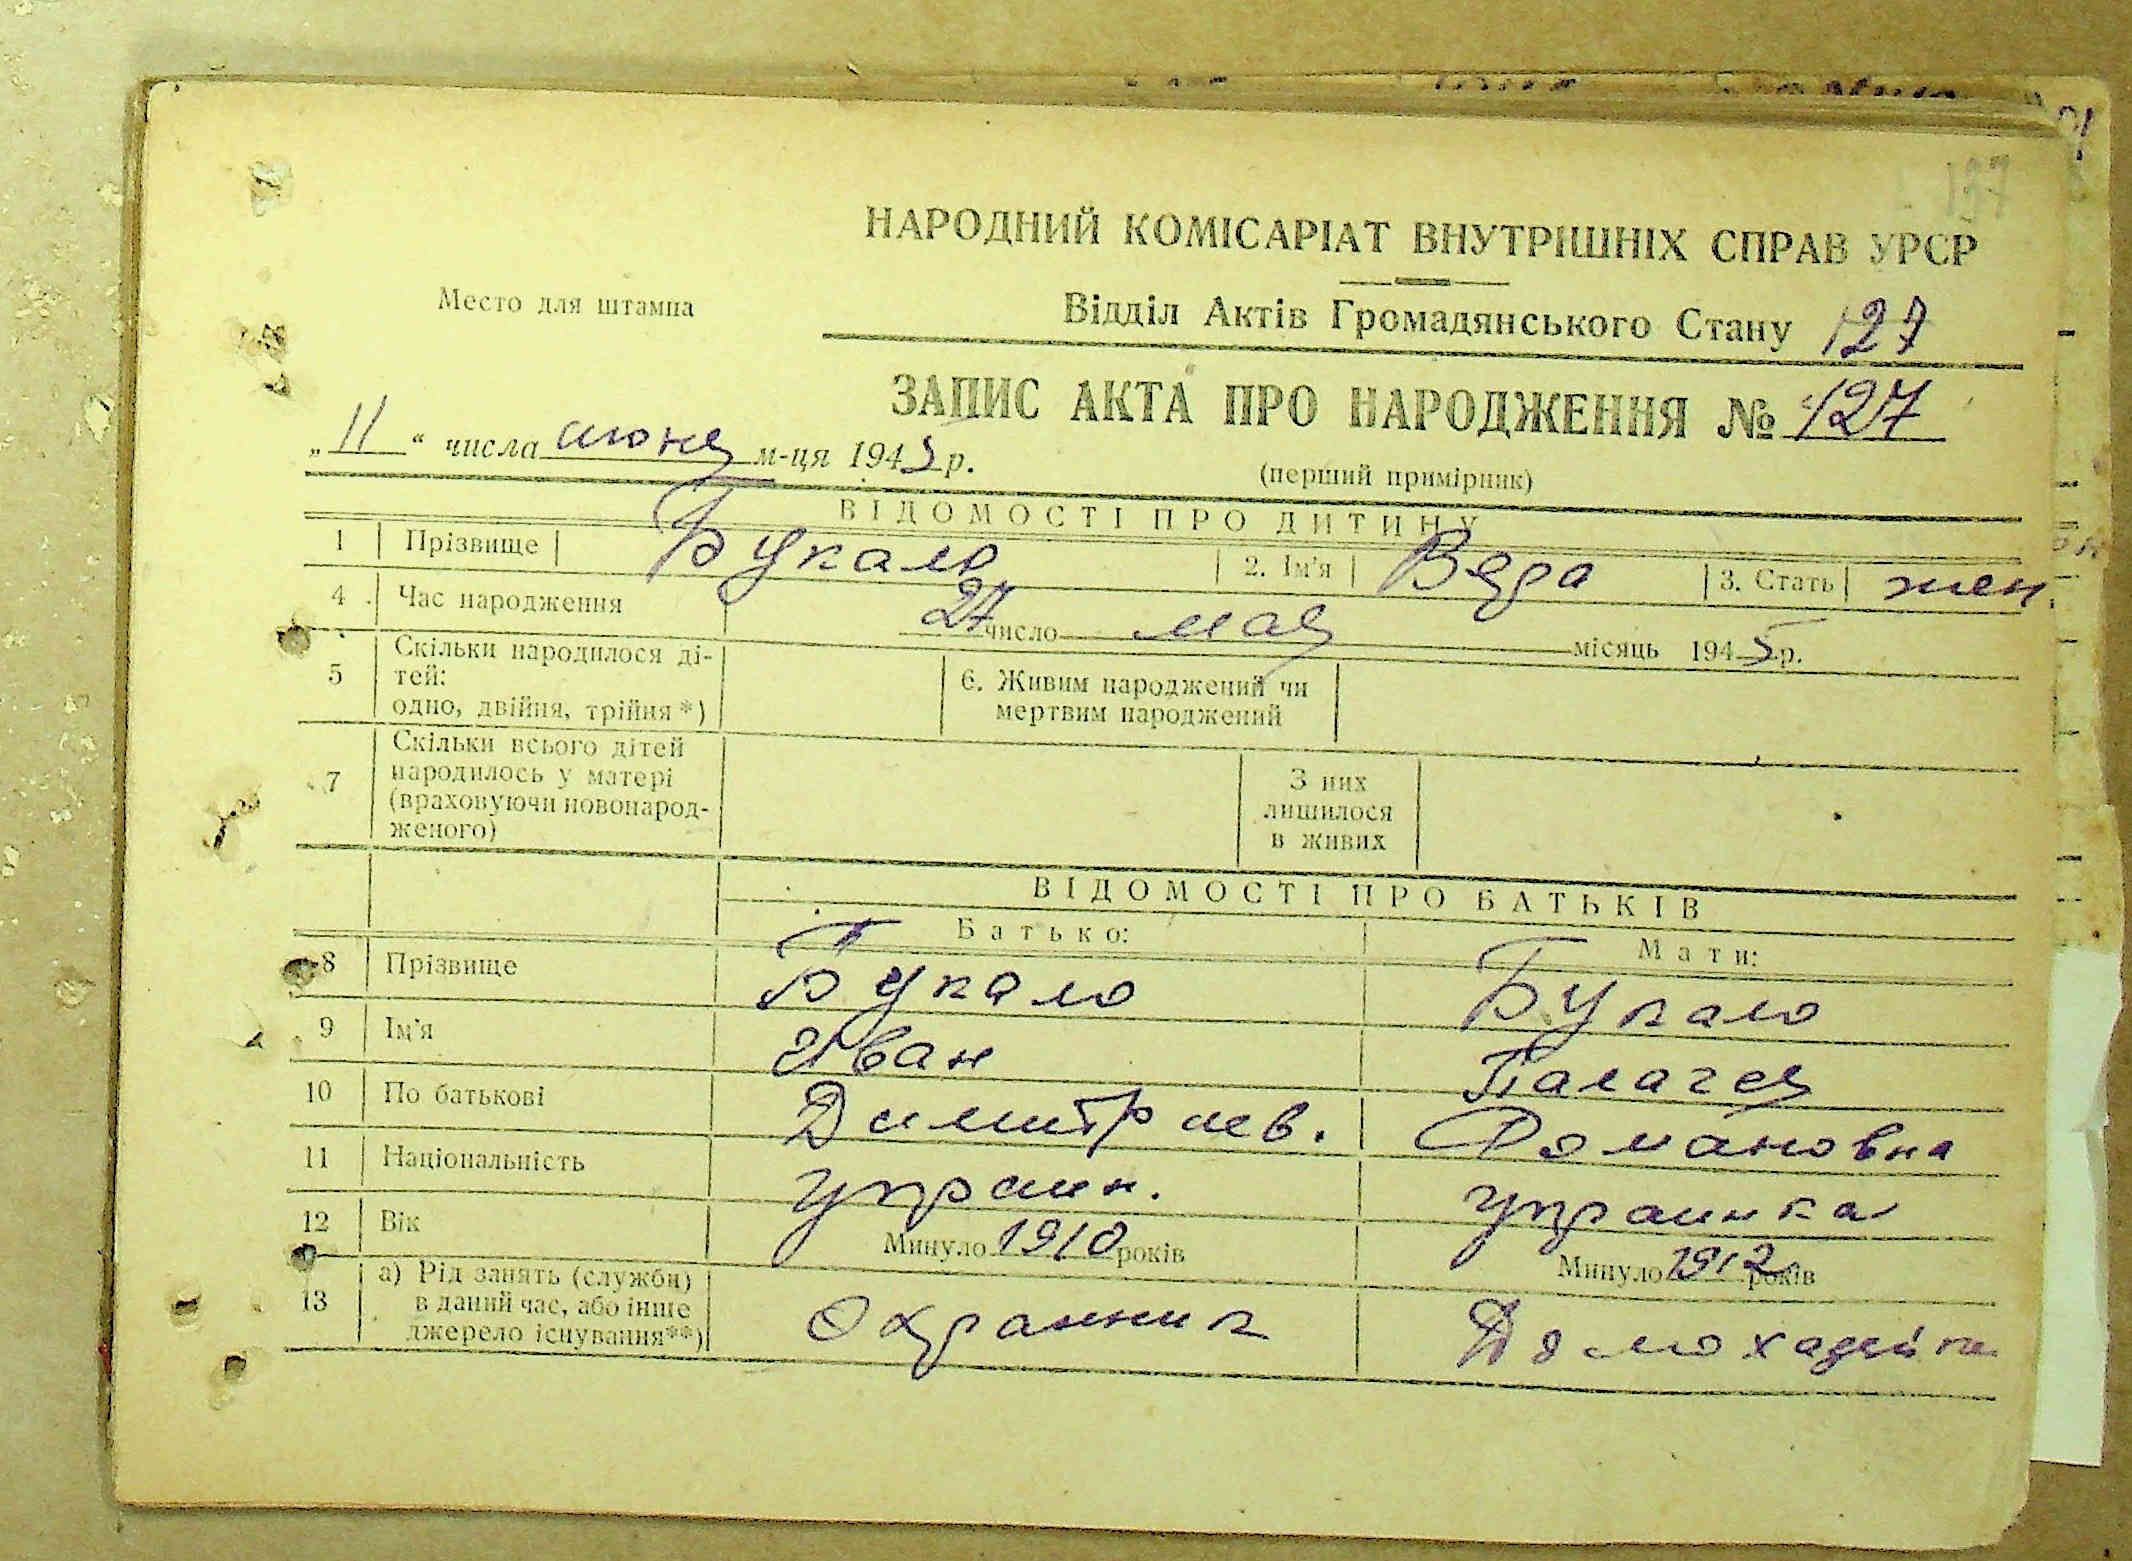 137
НАРОДНИЙ КОМІСАРІАТ ВНУТРІШНІХ СПРАВ УРСР
Место для штампа
Відділ Актів Громадянського Стану 127
ЗАПИС АКТА ПРО НАРОДЖЕННЯ № 127
„11“ числа июня м-ця 1945 р.
(перший примірник)
ВІДОМОСТІ ПРО ДИТИНУ
1 Прізвище Букало 2. Ім'я Вера 3. Стать жен.
4 Час народження 27 число мая місяць 1945 р.
5 Скільки народилося ді-
тей:
одно, двійня, трійня*)
6. Живим народжений чи
мертвим народжений
7 Скільки всього дітей
народилось у матері
(враховуючи новонарод-
женого)
З них
лишилося
в живих
ВІДОМОСТІ ПРО БАТЬКІВ
Батько: Мати:
8 Прізвище Букало Букало
9 Ім'я Иван Палагея
10 По батькові Димитриев. Романовна
11 Національність украин. украинка
12 Вік Минуло 1910 років Минуло 1912 років
13 а) Рід занять (служби)
в даний час, або інше
джерело існування**)
Охранник Домохазяйка